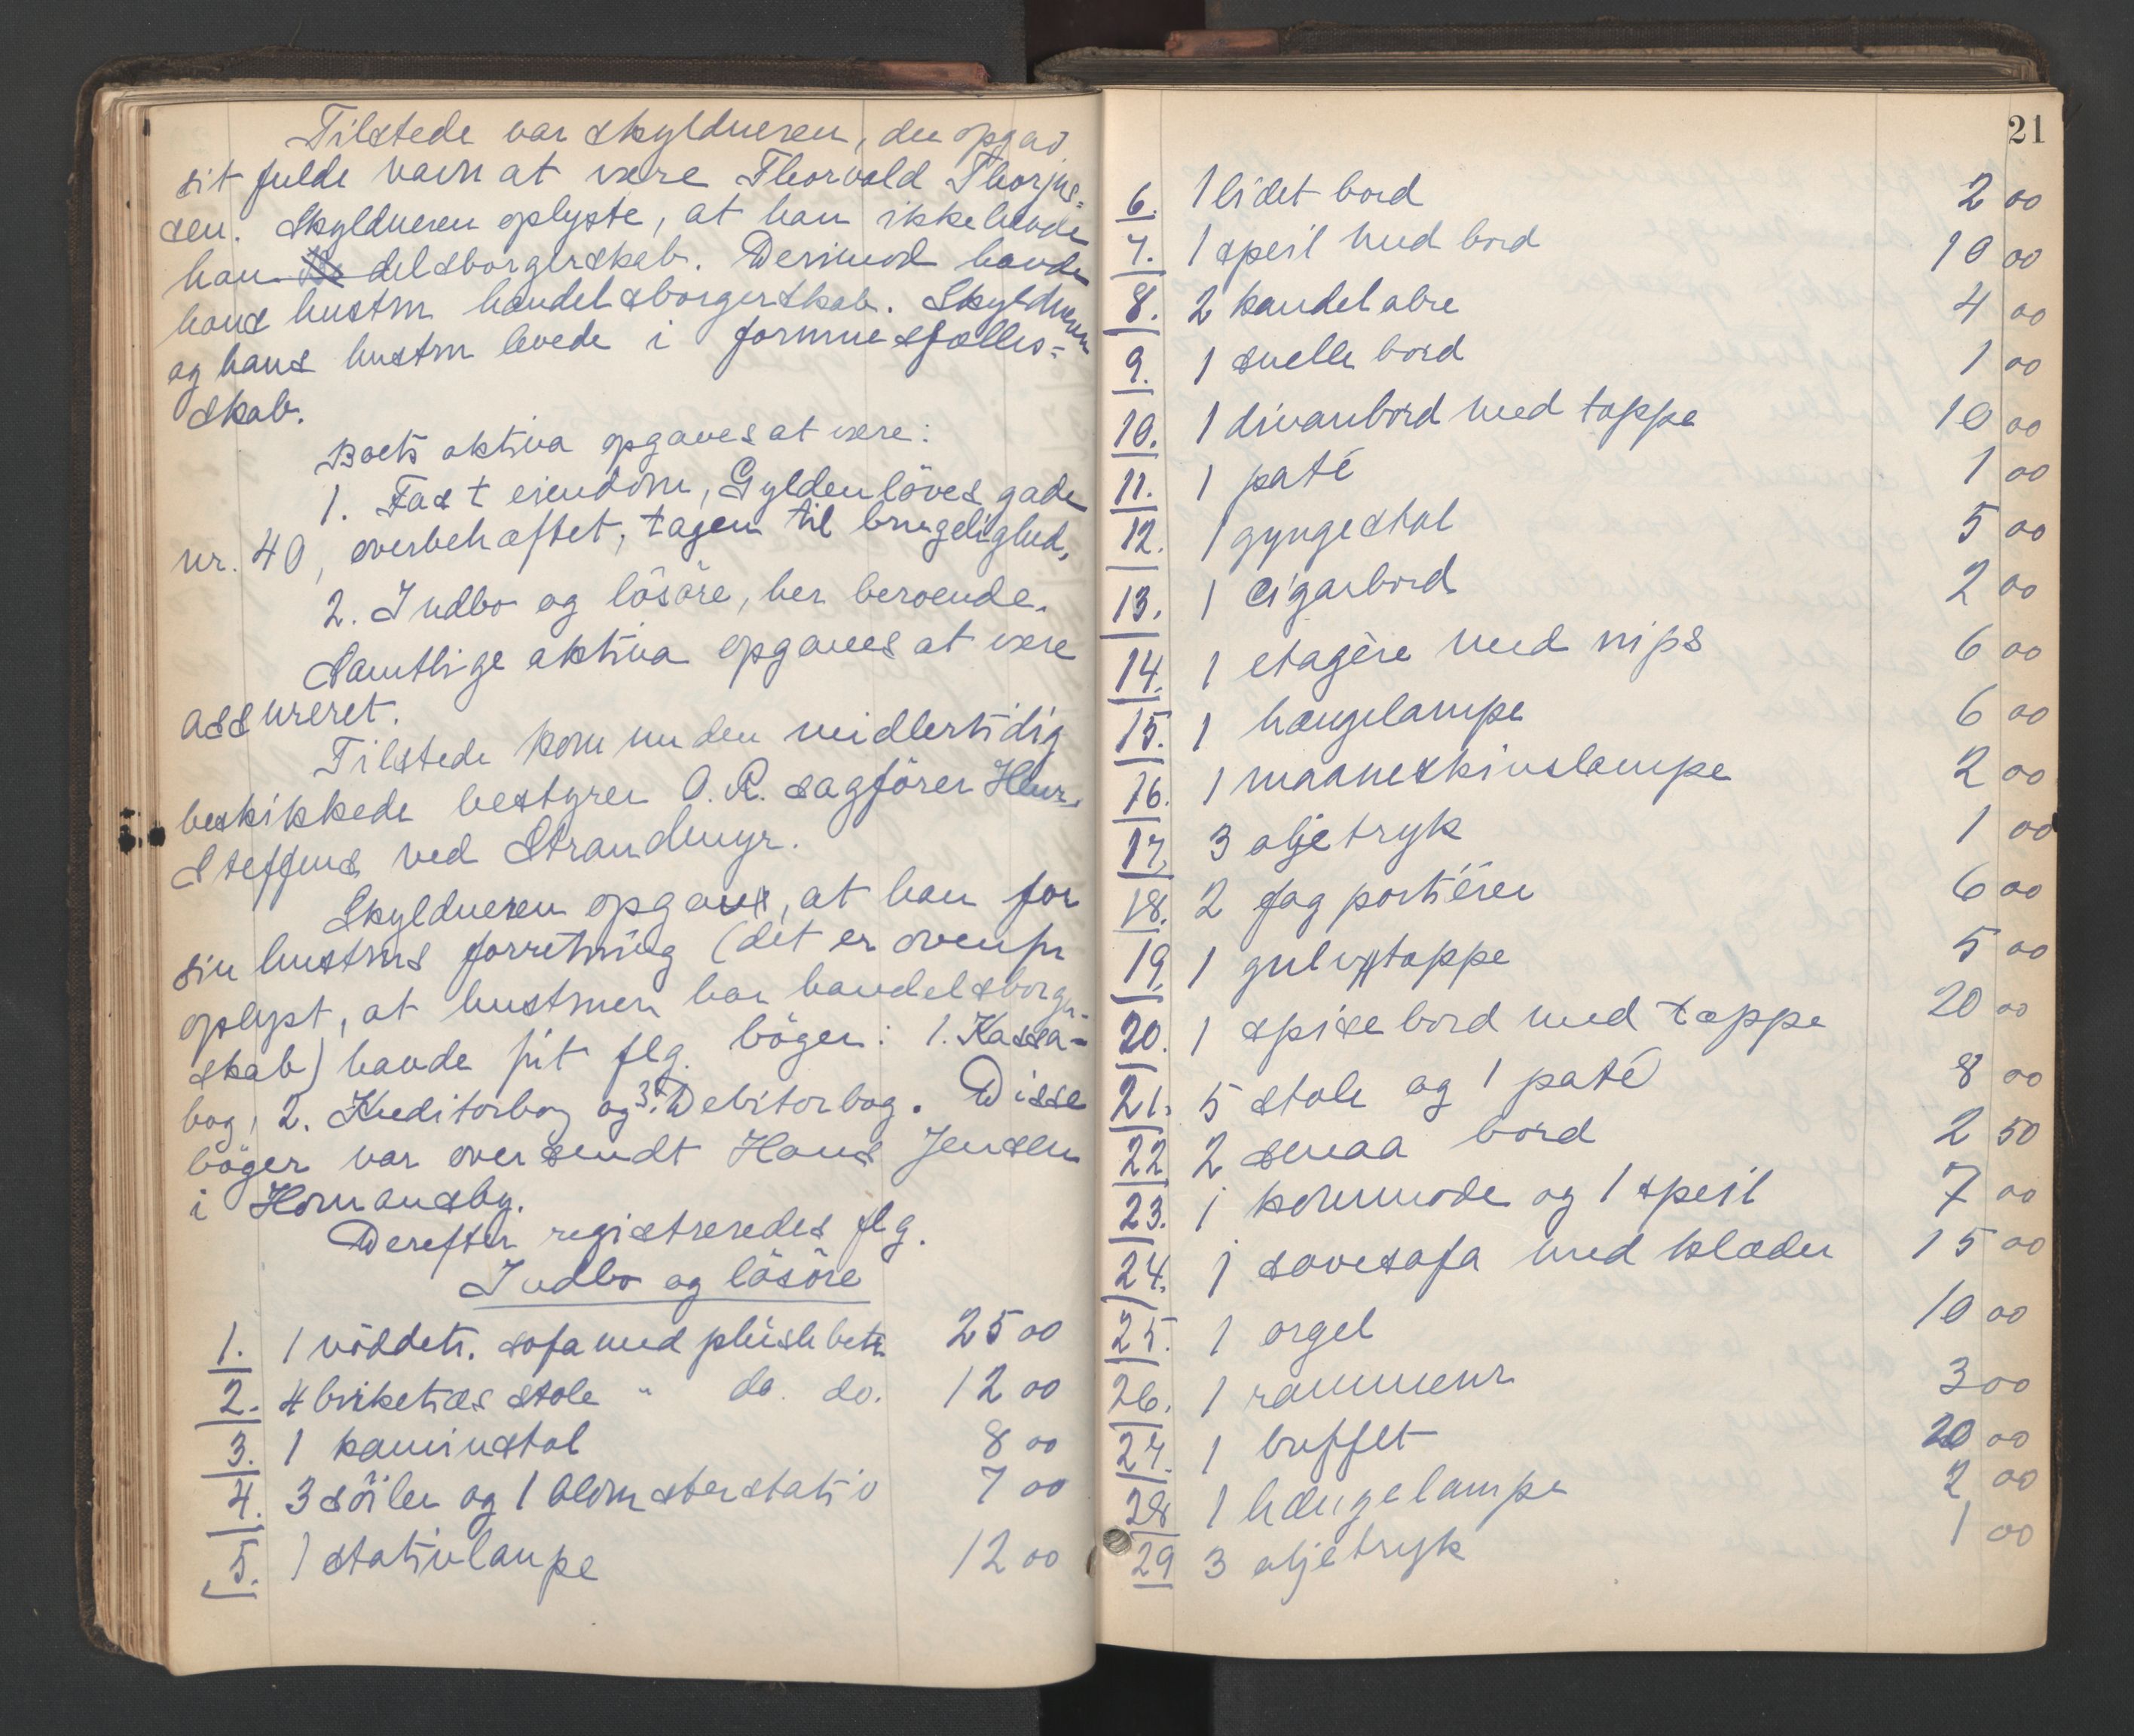 Tilstede var skyldneren, der opgav
sit fulde navn at være Thorvald Thorjus=
sen. Skyldneren oplyste, at han ikke havde
han delsborgerskab. Derimod havde
hans hustru handelsborgerskab. Skyldneren
og hans hustru levede i formuesfælles=
skab.
Boets aktiva opgaves at være:
1. Fast eiendom, Gyldenlöves gade
nr. 40, overbehæftet, tagen til brugeligheds,
2. Indbo og lösöre, her beroende.
Samtlige aktiva opgaves at være
assureret.
Tilstede kom nu den midlertidig
beskikkede bestyrer O.R. sagförer Henr.
Steffens ved Strandmyr.
Skyldneren opgav, at han for
sin hustrus forretning (det er ovenfor
oplyst, at hustruen har handelsborger-
skab) havde ført flg. böger: 1. Kassa-
bog, 2. Kreditorbog og 3. Debitorbog. Disse
böger var oversendt Hans Jensen
i Homansby.
Derefter registreredes flg.
Indbo og lösöre
1. 1 nöddetr. sofa med plüsch betr. 25 00
2. 4 birketræs stole " do. do. 12 00
3. 1 kaminstol 8 00
4. 3 söiler og 1 blomsterstativ 7 00
5. 1 stativlampe 12 00
21
6. 1 lidet bord 2 00
7. 1 speil med bord 10 00
8. 2 kandelabre 4 00
9. 1 snelle bord 1 00
10. 1 divanbord med tæppe 10 00
11. 1 paté 1 00
12. 1 gyngestol 5 00
13. 1 cigarbord 2 00
14. 1 etagère med nips 6 00
15. 1 hængelampe 6 00
16. 1 maaneskinslampe 2 00
17. 3 oljetryk 1 00
18. 2 fag portièrer 6 00
19. 1 gulvtæppe 5 00
20. 1 spisebord med tæppe 20 00
21. 5 stole og 1 paté 8 00
22 2 smaa bord 2 50
23. 1 kommode og 1 speil 7 00
24. 1 sovesofa med klæder 15 00
25. 1 orgel 10 00
26. 1 rammeur 3 00
27. 1 buffet 20 00
28 1 hængelampe 2 00
29 3 oljetryk 1 00